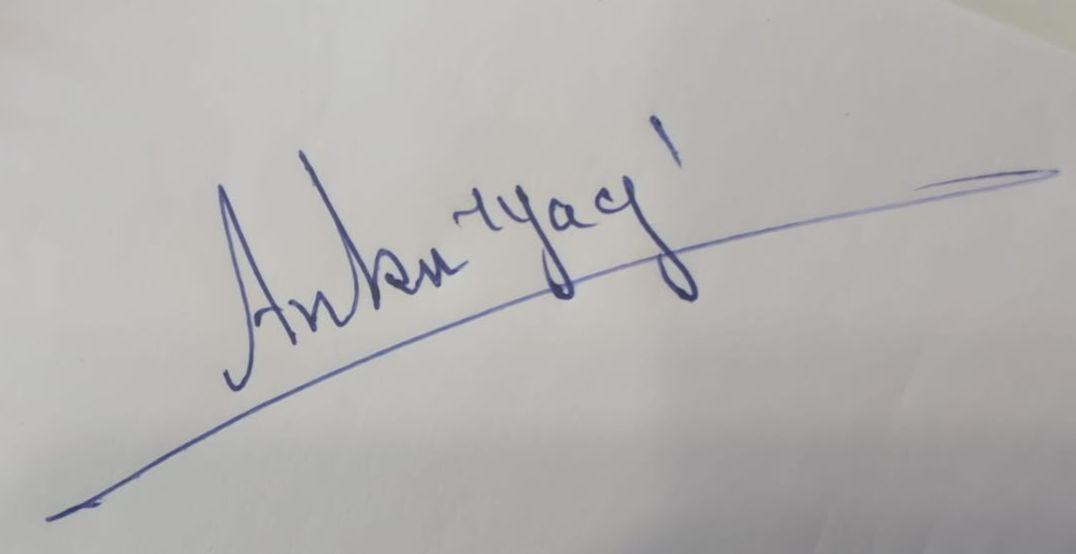 Ankur Tyagi